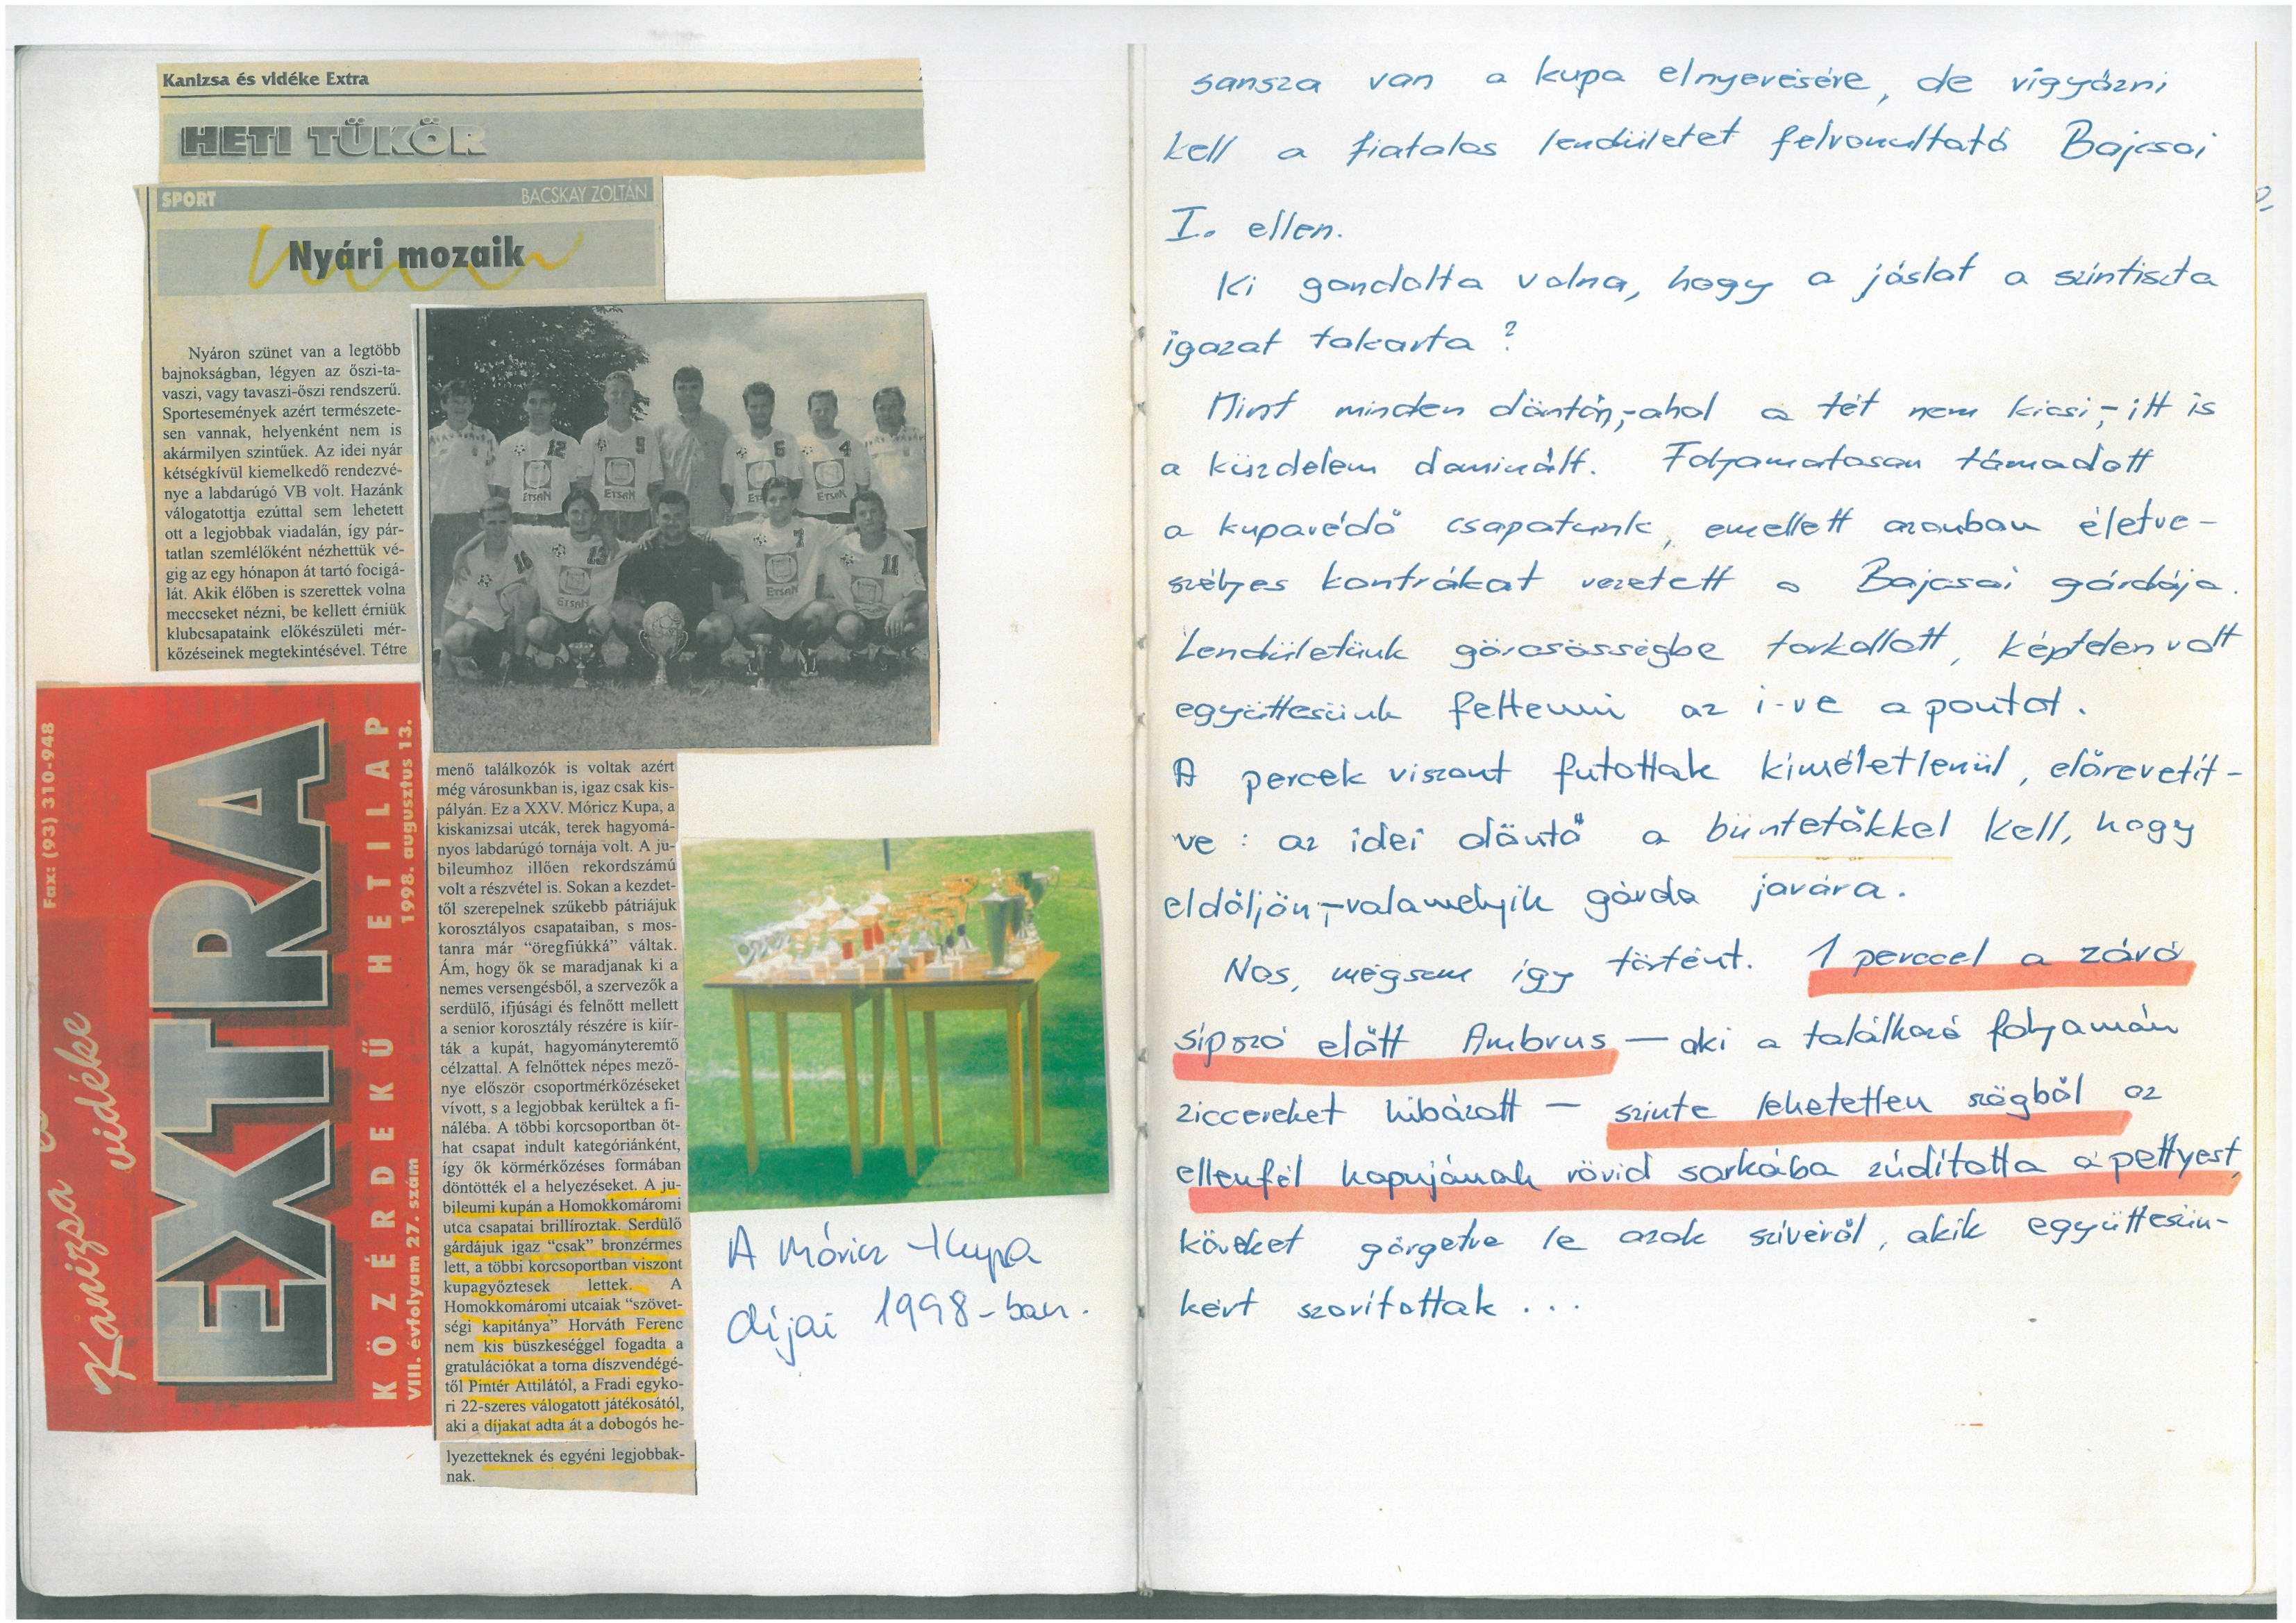 Kanizsa és vidéke Extra
HETI TÜKÖR
SPORT
BACSKAY ZOLTÁN
Nyári mozaik
Nyáron szünet van a legtöbb
bajnokságban, légyen az őszi-ta-
vaszi, vagy tavaszi-őszi rendszerű.
Sportesemények azért természete-
sen vannak, helyenként nem is
akármilyen szintűek. Az idei nyár
kétségkívül kiemelkedő rendezvé-
nye a labdarúgó VB volt. Hazánk
válogatottja ezúttal sem lehetett
ott a legjobbak viadalán, így pár-
tatlan szemlélőként nézhettük vé-
gig az egy hónapon át tartó focigá-
lát. Akik élőben is szerettek volna
meccseket nézni, be kellett érniük
klubcsapataink előkészületi mér-
kőzéseinek megtekintésével. Tétre
12
9
6
4
ETSAN
ETSAN
ETSAN
16
13
7
11
ETSAN
ETSAN
menő találkozók is voltak azért
még városunkban is, igaz csak kis-
pályán. Ez a XXV. Móricz Kupa, a
kiskanizsai utcák, terek hagyomá-
nyos labdarúgó tornája volt. A ju-
bileumhoz illően rekordszámú
volt a részvétel is. Sokan a kezdet-
től szerepelnek szűkebb pátriájuk
korosztályos csapataiban, s mos-
tanra már "öregfiúkká" váltak.
Ám, hogy ők se maradjanak ki a
nemes versengésből, a szervezők a
serdülő, ifjúsági és felnőtt mellett
a senior korosztály részére is kiír-
ták a kupát, hagyományteremtő
célzattal. A felnőttek népes mező-
nye először csoportmérkőzéseket
vívott, s a legjobbak kerültek a fi-
náléba. A többi korcsoportban öt-
hat csapat indult kategóriánként,
így ők körmérkőzéses formában
döntötték el a helyezéseket. A ju-
bileumi kupán a Homokkomáromi
utca csapatai brillíroztak. Serdülő
gárdájuk igaz "csak" bronzérmes
lett, a többi korcsoportban viszont
kupagyőztesek lettek. A
Homokkomáromi utcaiak "szövet-
ségi kapitánya" Horváth Ferenc
nem kis büszkeséggel fogadta a
gratulációkat a torna díszvendégé-
től Pintér Attilától, a Fradi egyko-
ri 22-szeres válogatott játékosától,
aki a díjakat adta át a dobogós he-
lyezetteknek és egyéni legjobbak-
nak.
Fax: (93) 310-948
Kanizsa és vidéke
EXTRA
KÖZÉRDEKŰ HETILAP
VIII. évfolyam 27. szám
1998. augusztus 13.
A Móricz Kupa
díjai 1998-ban.
sansza van a kupa elnyerésére, de vigyázni
kell a fiatalos lendületet felvonultató Bajcsai
I. ellen.
Ki gondolta volna, hogy a jóslat a színtiszta
igazat takarta?
Mint minden döntőn,-ahol a tét nem kicsi,-itt is
a küzdelem dominált. Folyamatosan támadott
a kupavédő csapatunk, emellett azonban életve-
szélyes kontrákat vezetett a Bajcsai gárdája.
Lendületünk görcsösségbe torkollott, képtelen volt
együttesünk feltenni az i-re a pontot.
A percek viszont futottak kíméletlenül, előrevetít-
ve: az idei döntő a büntetőkkel kell, hogy
eldőljön,-valamelyik gárda javára.
Nos, mégsem így történt. 1 perccel a záró
sípszó előtt Ambrus — aki a találkozó folyamán
ziccereket hibázott — szinte lehetetlen szögből az
ellenfél kapujának rövid sarkába zúdította a pettyest,
köveket görgetve le azok szívéről, akik együttesün-
kért szorítottak ...